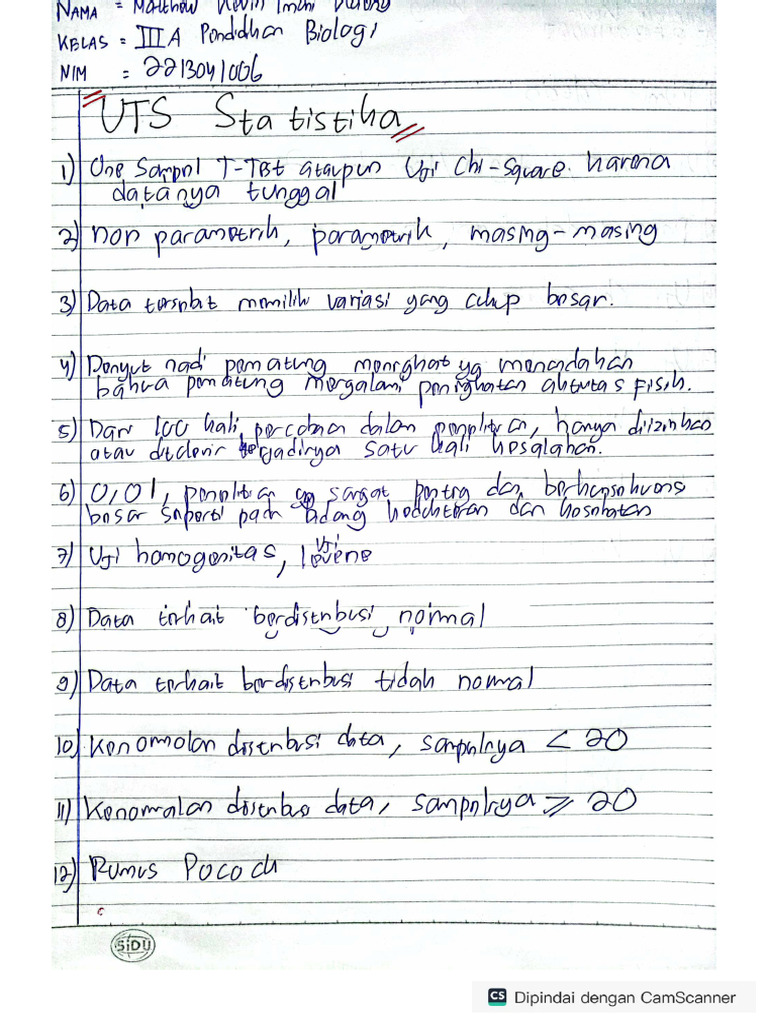 NAMA = Matthew Kevin
KELAS = III A Pendidikan Biologi
NIM = 2213041006
UTS Statistika
1) One Sampel T-Test ataupun Uji Chi-Square. karena
datanya tunggal
2) non parametrik, parametrik, masing-masing
3) Data tersebut memiliki variasi yang cukup besar.
4) Denyut nadi pematung meningkat yg menandakan
bahwa pematung mengalami peningkatan aktivitas fisik.
5) Dari 100 kali percobaan dalam penelitian, hanya diizinkan
atau ditolerir terjadinya satu kali kesalahan.
6) 0,01, penelitian yg sangat penting dan berkonsekuensi
besar seperti pada bidang kedokteran dan kesehatan
7) Uji homogenitas, Uji levene
8) Data terkait berdistribusi normal
9) Data terkait berdistribusi tidak normal
10) Kenormalan distribusi data, sampelnya < 20
11) Kenormalan distribusi data, sampelnya ⩾ 20
12) Rumus Pocock
SiDU
CS Dipindai dengan CamScanner